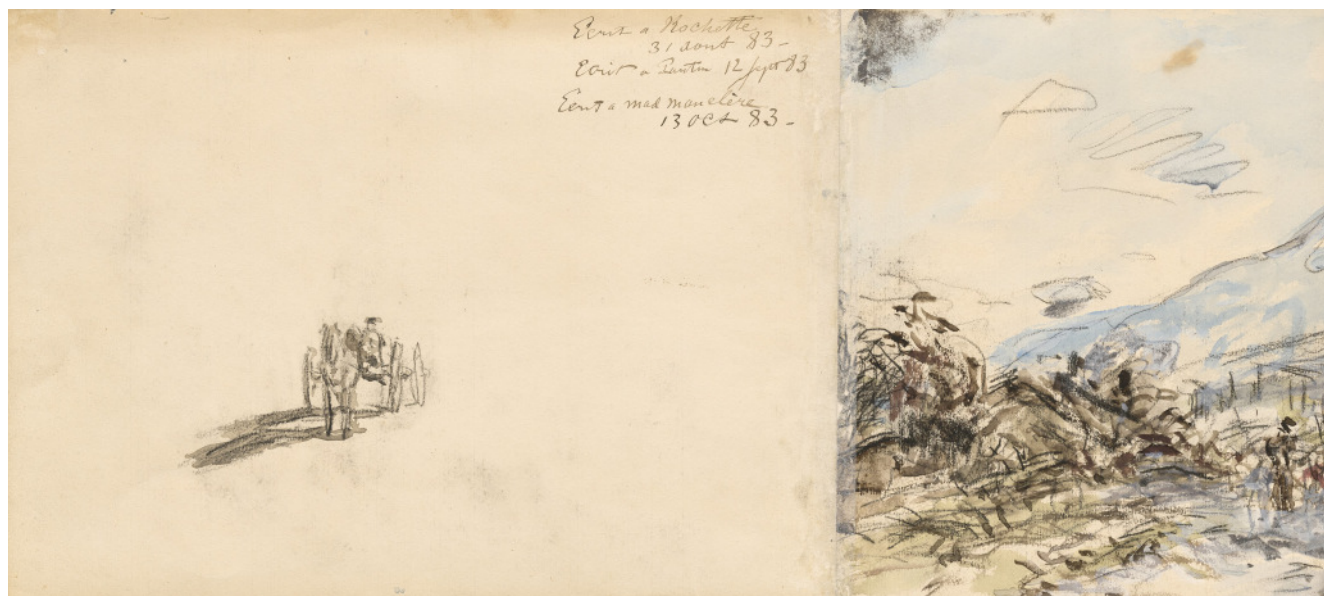 Ecrit a Rochette
31 aout 83 -
Ecrit a Pantin 12 Sept 83
Ecrit a mad
13 oct 83 -